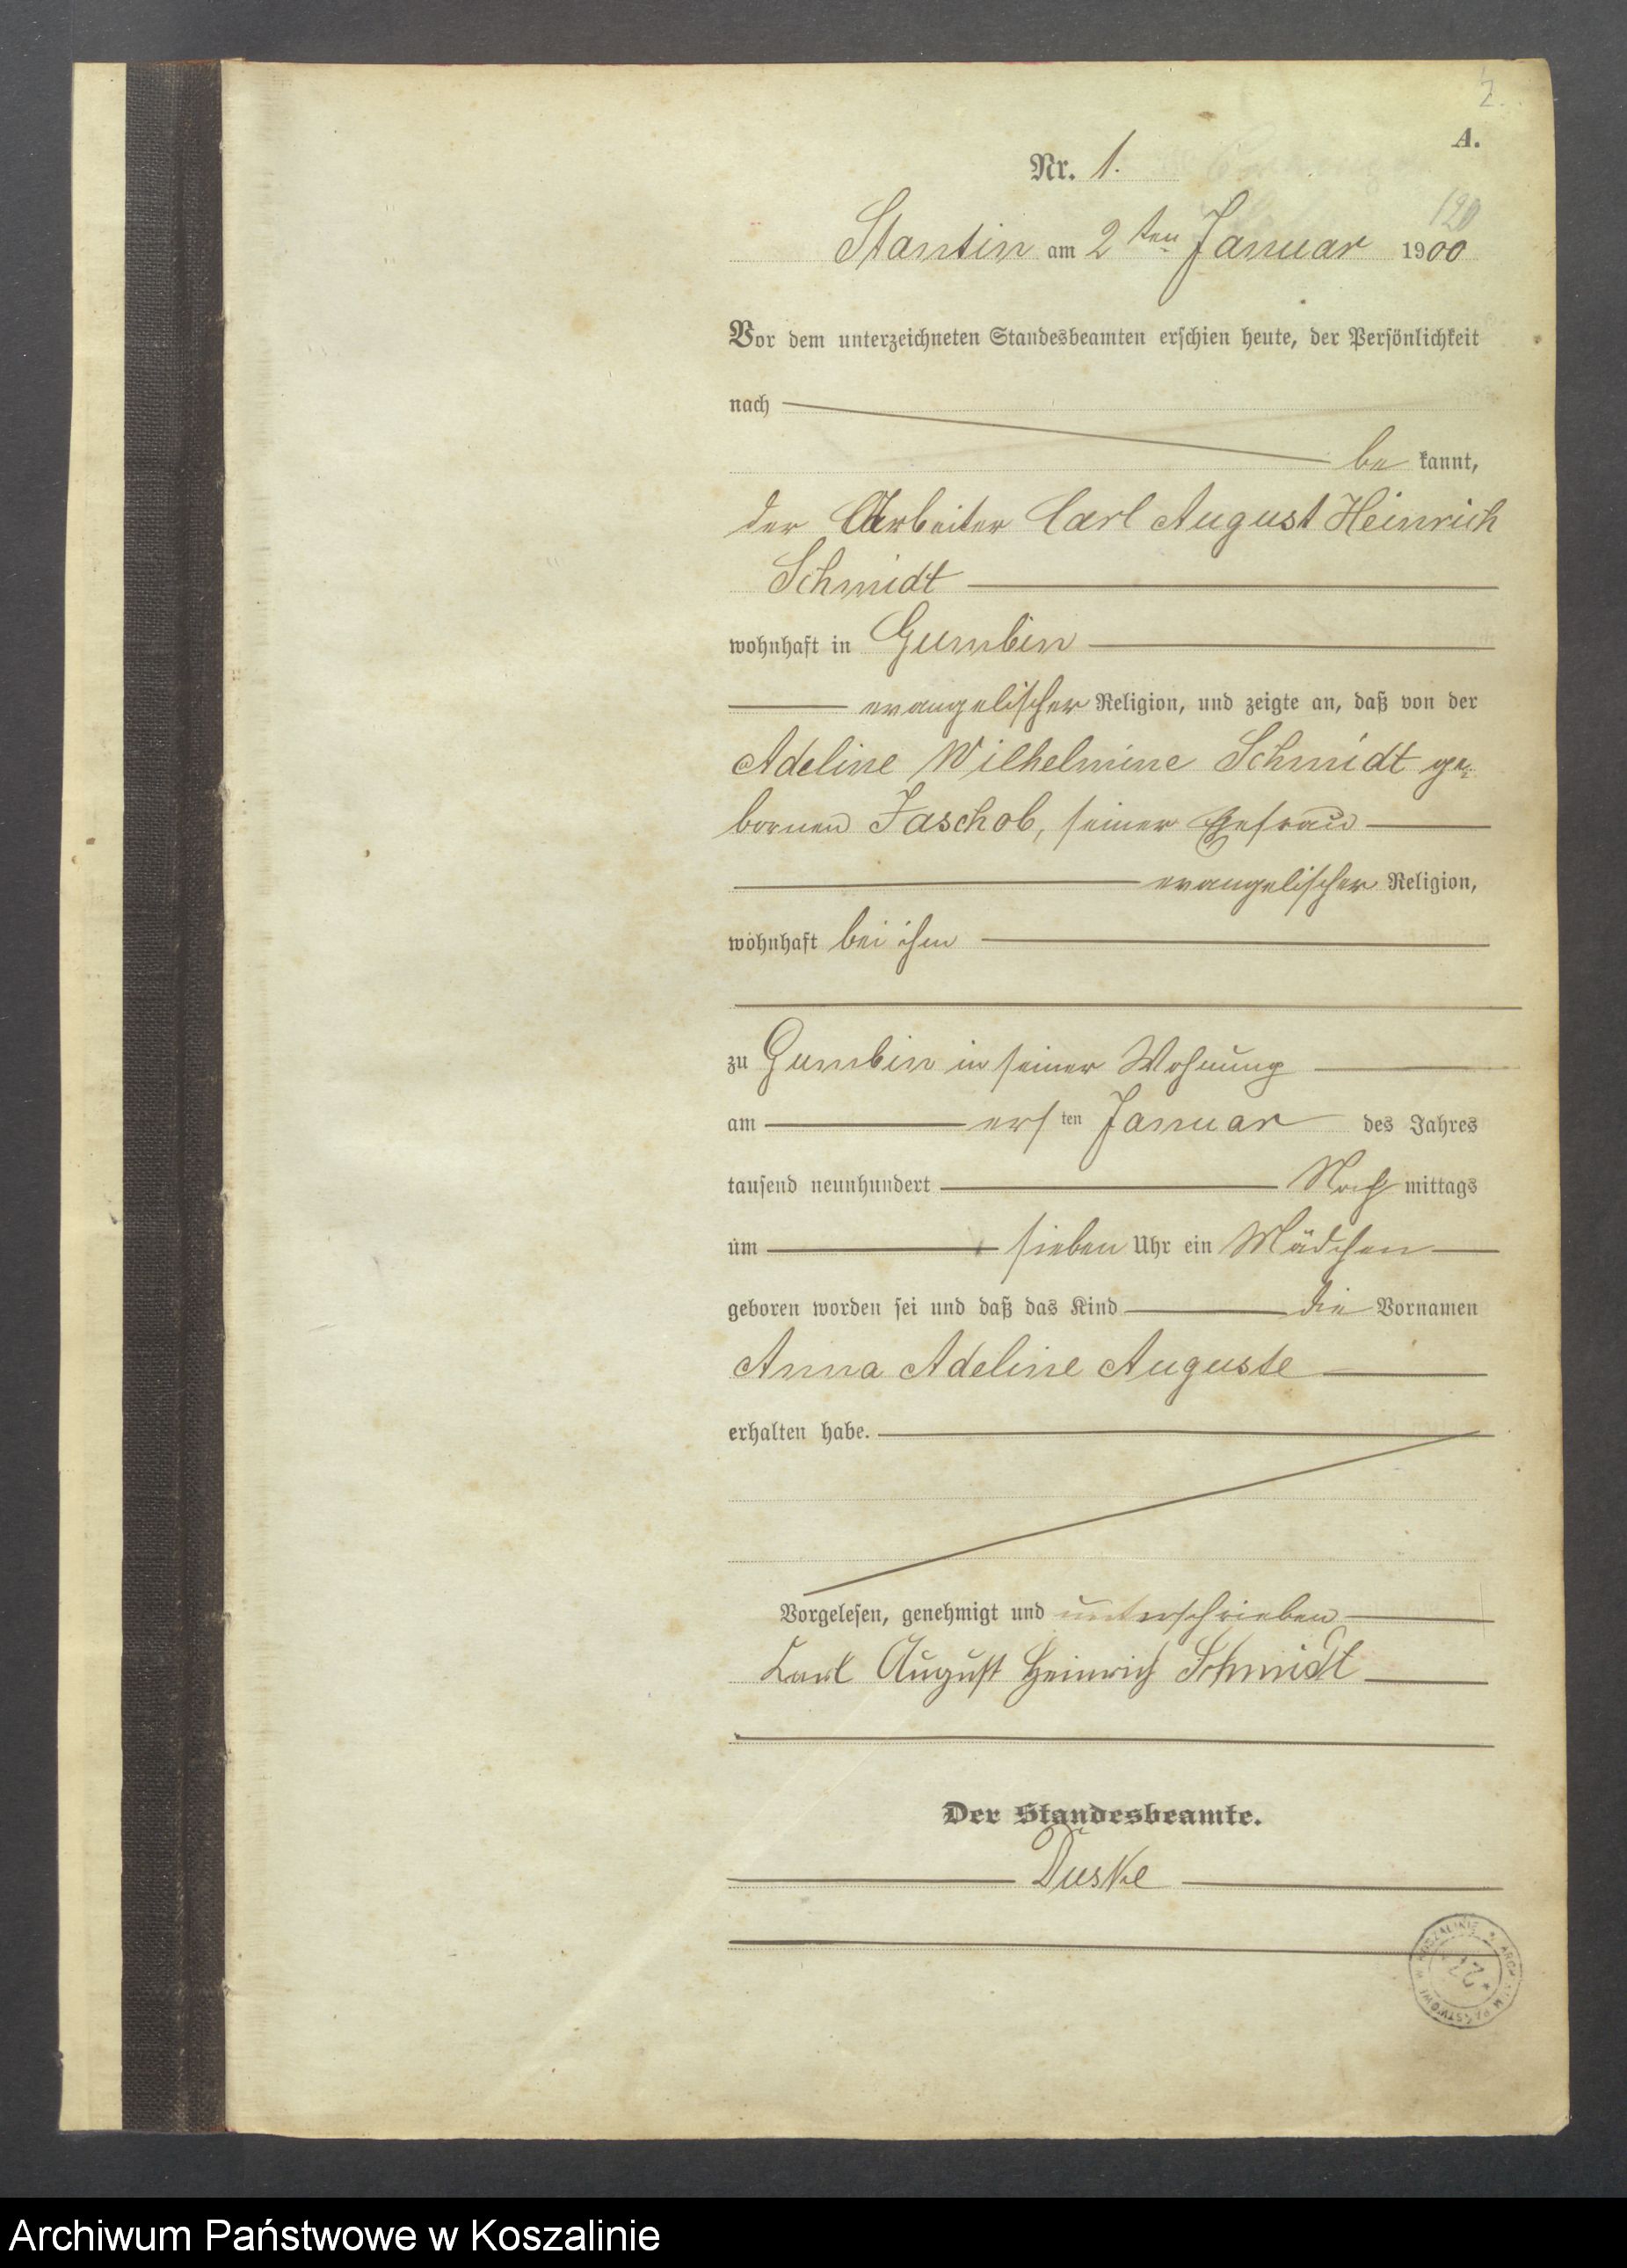 2.
A.
Nr. 1.
120
Stantin am 2ten Januar 1900
Vor dem unterzeichneten Standesbeamten erschien heute, der Persönlichkeit
nach
be kannt,
der Arbeiter Carl August Heinrich
Schmidt
wohnhaft in Gumbin
evangelischer Religion, und zeigte an, daß von der
Adeline Wilhelmine Schmidt ge-
bornen Jaschob, seiner Ehefrau
evangelischer Religion,
wohnhaft bei ihm
zu Gumbin in seiner Wohnung
am ersten Januar des Jahres
tausend neunhundert Nach mittags
um sieben Uhr ein Mädchen
geboren worden sei und daß das Kind die Vornamen
Anna Adeline Auguste
erhalten habe.
Vorgelesen, genehmigt und unterschrieben
Carl August Heinrich Schmidt
Der Standesbeamte.
Duske
Archiwum Państwowe w Koszalinie